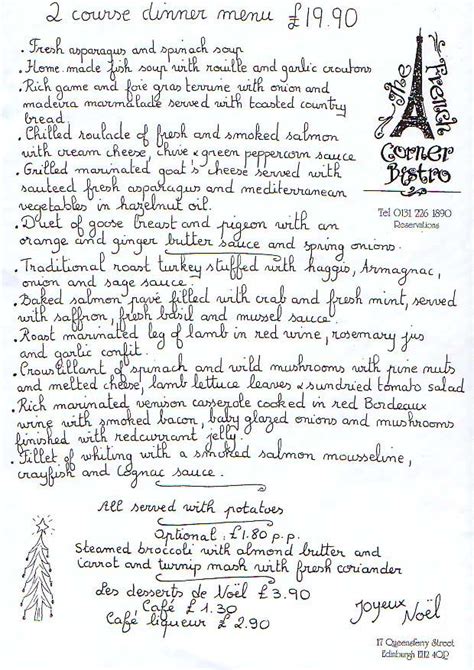 2 course dinner menu £19.90
. Fresh asparagus and spinach soup
. Home made fish soup with rouille and garlic croutons
. Rich game and foie gras terrine with onion and
madeira marmalade served with toasted country
bread
. Chilled roulade of fresh and smoked salmon
with cream cheese, chive & green peppercorn sauce
. Grilled marinated goat's cheese served with
sauteed fresh asparagus and mediterranean
vegetables in hazelnut oil.
. Duet of goose breast and pigeon with an
orange and ginger butter sauce and spring onions.
. Traditional roast turkey stuffed with haggis, Armagnac,
onion and sage sauce.
. Baked salmon pavé filled with crab and fresh mint, served
with saffron, fresh basil and mussel sauce.
. Roast marinated leg of lamb in red wine, rosemary jus
and garlic confit.
. Croustillant of spinach and wild mushrooms with pine nuts
and melted cheese, lamb lettuce leaves & sundried tomato salad
. Rich marinated venison casserole cooked in red Bordeaux
wine with smoked bacon, baby glazed onions and mushrooms
finished with redcurrant jelly.
. Fillet of whiting with a smoked salmon mousseline,
crayfish and Cognac sauce.
All served with potatoes
Optional: £1.80 p.p.
Steamed broccoli with almond butter and
carrot and turnip mash with fresh coriander
Les desserts de Noël £3.90
Café £1.30
Café liqueur £2.90
The French
Corner
Bistro
Tel 0131 226 1890
Reservations
Joyeux
Noël
17 Queensferry Street
Edinburgh EH2 4QP